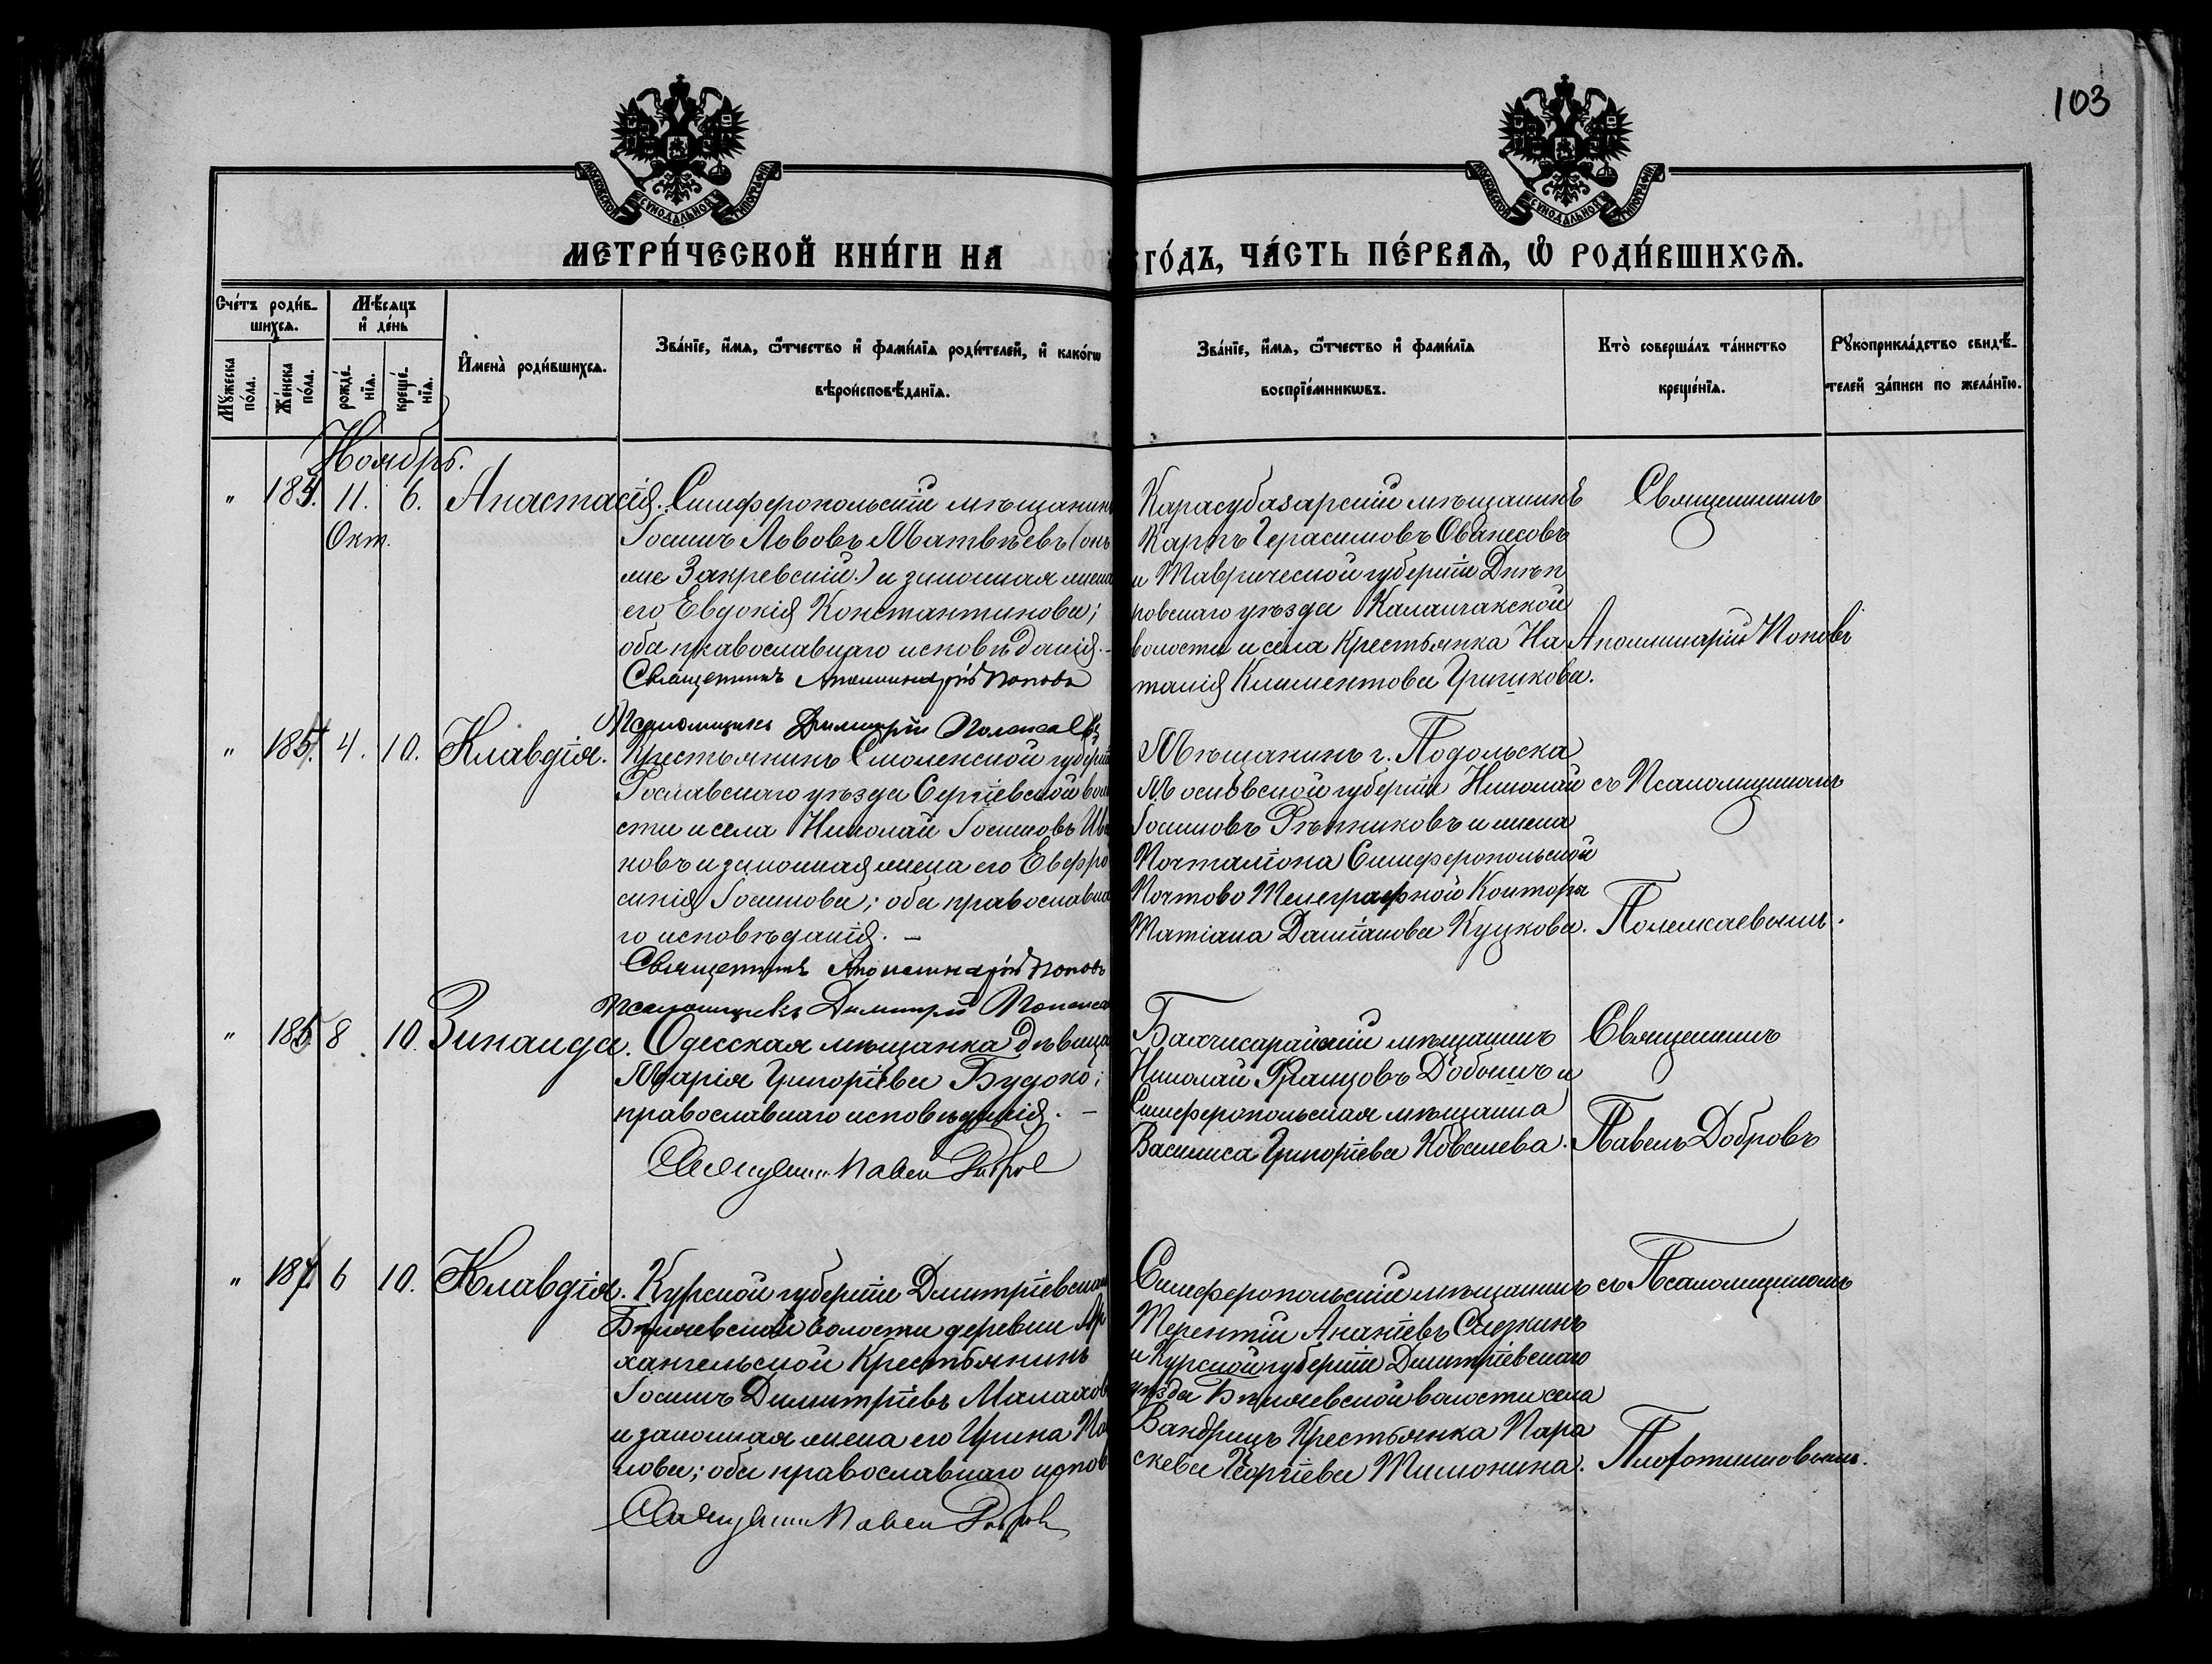 103
МОСКОВСКОЙ СѴНОДАЛЬНОЙ ТИПОГРАФІИ
МОСКОВСКОЙ СѴНОДАЛЬНОЙ ТИПОГРАФІИ
МЕТРИ́ЧЕСКОЙ КНИ́ГИ НА
ГО́ДЪ, ЧА́СТЬ ПЕ́РВАѦ, Ѿ РОДИ́ВШИХСѦ.
Сче́тъ роди́в-
шихсѧ.
Мѣ́сѧцъ
и҆ де́нь
Мꙋ́жеска
по́ла.
Же́нска
по́ла.
рожде́-
нїѧ.
креще́-
нїѧ.
И҆мена̀ роди́вшихсѧ.
Зва́нїе, и҆́мѧ, ѻ҆́тчество и҆ фами́лїѧ роди́телей, и҆ како́гѡ
вѣроисповѣ́данїѧ.
Зва́нїе, и҆́мѧ, ѻ҆́тчество и҆ фами́лїѧ
воспрїе́мникѡвъ.
Кто̀ соверша́лъ та́инство
креще́нїѧ.
Рꙋкоприкла́дство свидѣ́-
телей за́писи по жела́нїю.
Ноябрь.
" 184. 11. 6. Анастасія.
Окт.
Симферопольскій мѣщанинъ
Іосифъ Львовъ Матвѣевъ (онъ
же Закревскій) и законная жена
его Евдокія Константинова;
оба православнаго исповѣданія. –
Священникъ Аполлинарій Поповъ
Псаломщикъ Димитрій Полежаевъ
Карасубазарскій мѣщанинъ
Карпъ Герасимовъ Ованесовъ
и Таврической губерніи Днѣп
ровскаго уѣзда Каланчакской
волости и села Крестьянка На
талія Климентова Гришкова.
Священникъ
Аполлинарій Поповъ
" 185. 4. 10. Клавдія.
Крестьянинъ Смоленской губерніи
Рославскаго уѣзда Сергіевской воло
сти и села Николай Іосифовъ Ива
новъ и законная жена его Евфро
синія Іосифова; оба православна
го исповѣданія. –
Священникъ Аполлинарій Поповъ
Псаломщикъ Димитрій Полежа
Мѣщанинъ г. Подольска
Московской губерніи Николай
Іосифовъ Рѣпниковъ и жена
Почталіона Симферопольской
Почтово Телеграфной Конторы
Татіана Даміанова Куцкова.
съ Псаломщикомъ
Полежаевымъ.
" 186 8 10. Зинаида.
Одесская мѣщанка дѣвица
Марія Григоріева Будоко;
православнаго исповѣданія. –
Священникъ Павелъ Добровъ
Бахчисарайскій мѣщанинъ
Николай Францовъ Добошъ и
Симферопольская мѣщанка
Василиса Григоріева Ковалева.
Священникъ
Павелъ Добровъ
" 187 6 10. Клавдія.
Курской губерніи Дмитріевскаго
волости деревни Ар
хангельской Крестьянинъ
Іосифъ Димитріевъ Малахов
и законная жена его Ирина Па
лова; оба православнаго испов
Священникъ Павелъ Добровъ
Симферопольскій мѣщанинъ
Терентій Ананіевъ Слезкинъ
и Курской губерніи Дмитріевскаго
уѣзда волости села
Крестьянка Пара
скева Георгіева Тимонина.
съ Псаломщикомъ